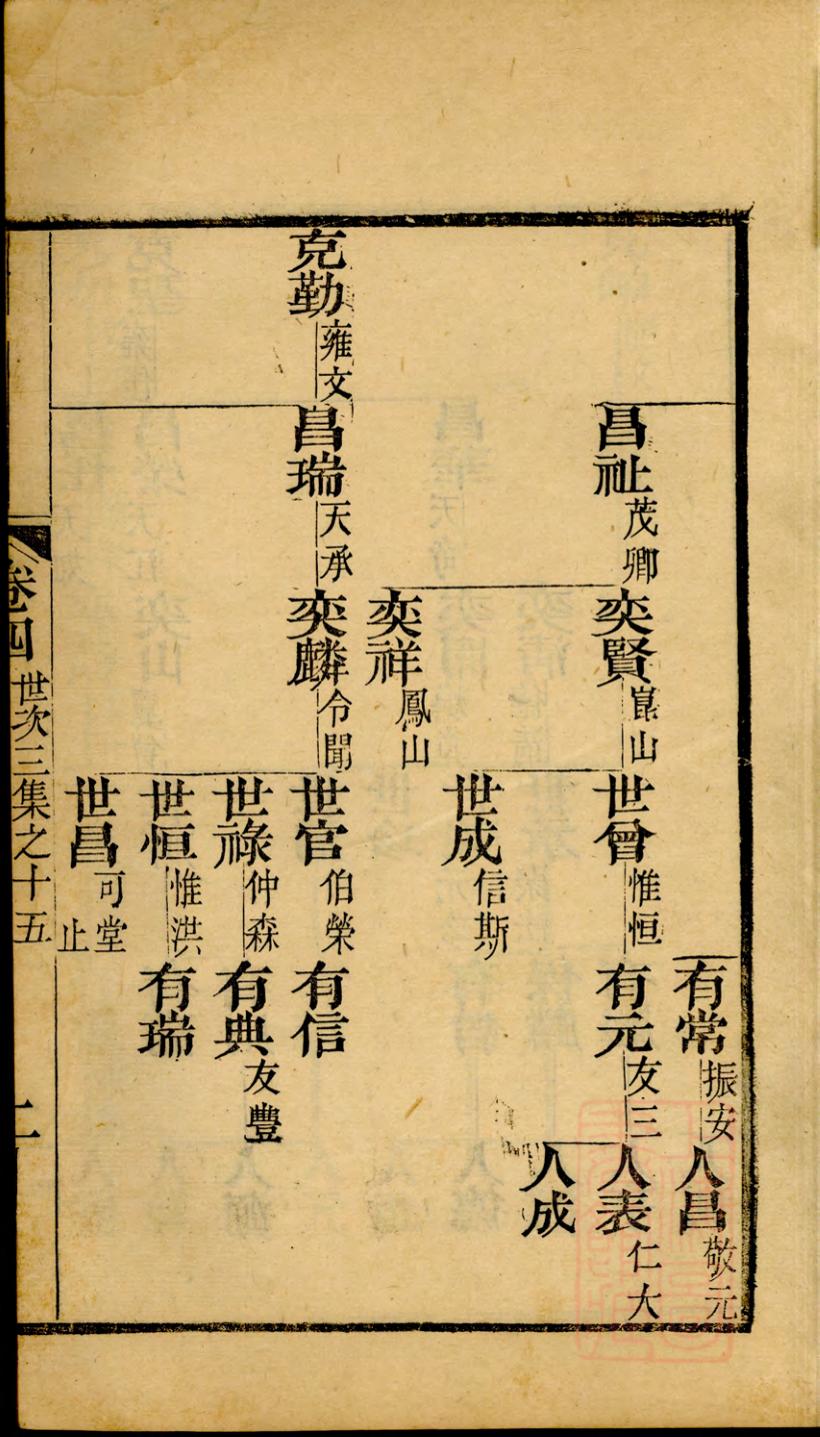 有常 振安
人昌 敬元
昌祉 茂卿
奕賢 崑山
世曾 惟恒
有元 友三
人表 仁大
人成
世成 信斯
奕祥 鳳山
克勤 雍文
昌瑞 天承
奕麟 令聞
世官 伯榮
有信
世祿 仲森
有典 友豊
世恒 惟洪
有瑞
世昌 可堂 止
卷四 世次三集之十五